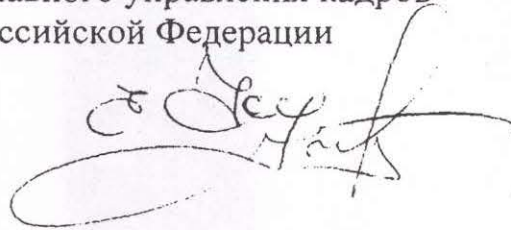 лавного управления кадров
ссийской Федерации